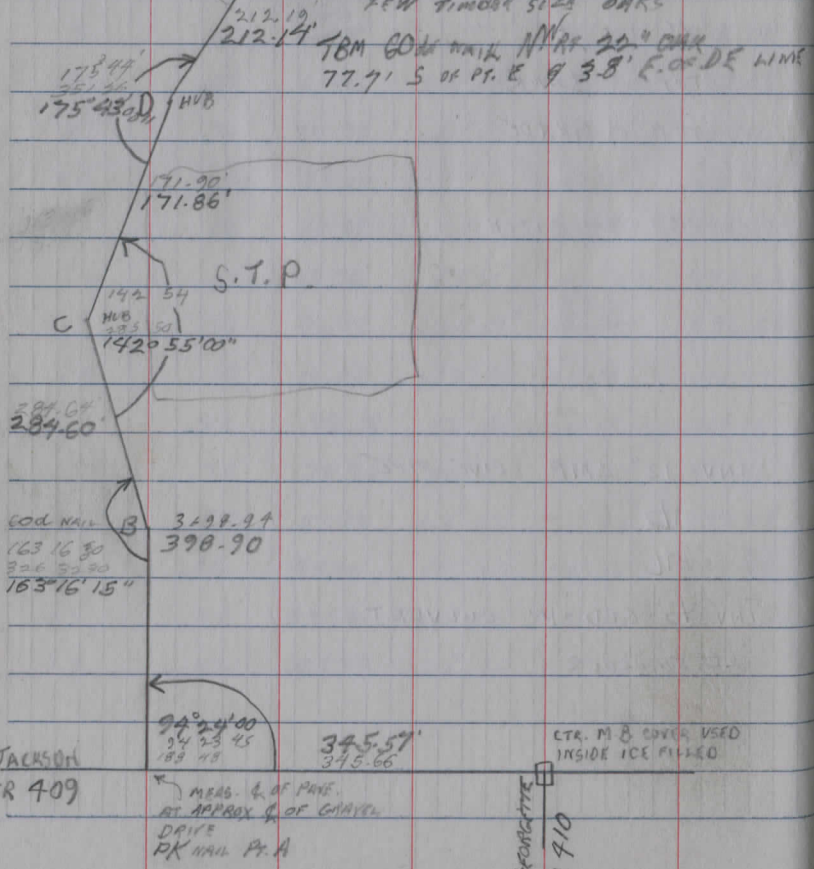 FEW TIMBER SIZE OAKS
212.19'
212.14'
TBM 60d NAIL 22" OAK
77.71' S OF PT. E & 3.8' E. OF DE LINE
175° 44'
175° 43'
D HUB
171.90'
171.86'
S.T.P.
142 54
C HUB
142° 55' 00"
284.64'
284.60'
60d NAIL B
398.94
398.90
163 16 30
326 32 30
163° 16' 15"
94° 24' 00
94 23 45
345.57'
345.66
CTR. M.B. COVER USED
INSIDE ICE FILLED
JACKSON
R 409
MEAS. ℄ OF PAVE.
AT APPROX ℄ OF GRAVEL
DRIVE
PK NAIL PT. A
410